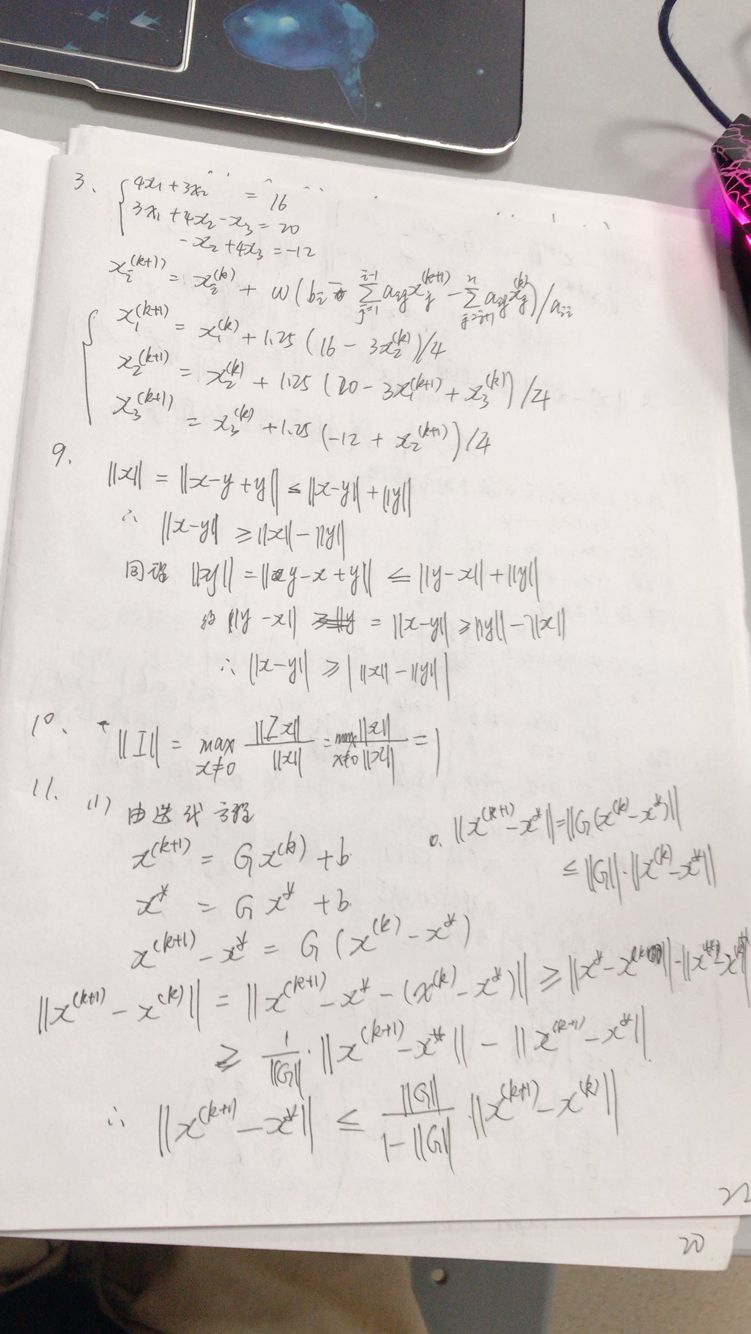 3、 4x₁ + 3x₂ = 16
3x₁ + 4x₂ - x₃ = 20
- x₂ + 4x₃ = -12
xᵢ^(k+1) = xᵢ^(k) + ω(bᵢ - Σ_{j=1}^{i-1} aᵢⱼxⱼ^(k+1) - Σ_{j=i+1}^{n} aᵢⱼxⱼ^(k))/aᵢᵢ
x₁^(k+1) = x₁^(k) + 1.25 (16 - 3x₂^(k))/4
x₂^(k+1) = x₂^(k) + 1.25 (20 - 3x₁^(k+1) + x₃^(k))/4
x₃^(k+1) = x₃^(k) + 1.25 (-12 + x₂^(k+1))/4
9. ||x|| = ||x-y+y|| ≤ ||x-y|| + ||y||
∴ ||x-y|| ≥ ||x|| - ||y||
同理 ||y|| = ||y-x+y|| ≤ ||y-x|| + ||y||
||y-x|| = ||x-y|| ≥ ||y|| - ||x||
∴ ||x-y|| ≥ | ||x|| - ||y|| |
10、 ||I|| = max_{x≠0} ||Ix||/||x|| = max_{x≠0} ||x||/||x|| = 1
11. (1) 由迭代方程
x^(k+1) = Gx^(k) + b
x* = Gx* + b
x^(k+1) - x* = G(x^(k) - x*)
0. ||x^(k+1) - x*|| = ||G(x^(k) - x*)||
≤ ||G||·||x^(k) - x*||
||x^(k+1) - x^(k)|| = ||x^(k+1) - x* - (x^(k) - x*)|| ≥
≥ 1/||G|| · ||x^(k+1) - x*|| - ||x^(k+1) - x*||
∴ ||x^(k+1) - x*|| ≤ ||G||/(1-||G||) · ||x^(k+1) - x^(k)||
22
20